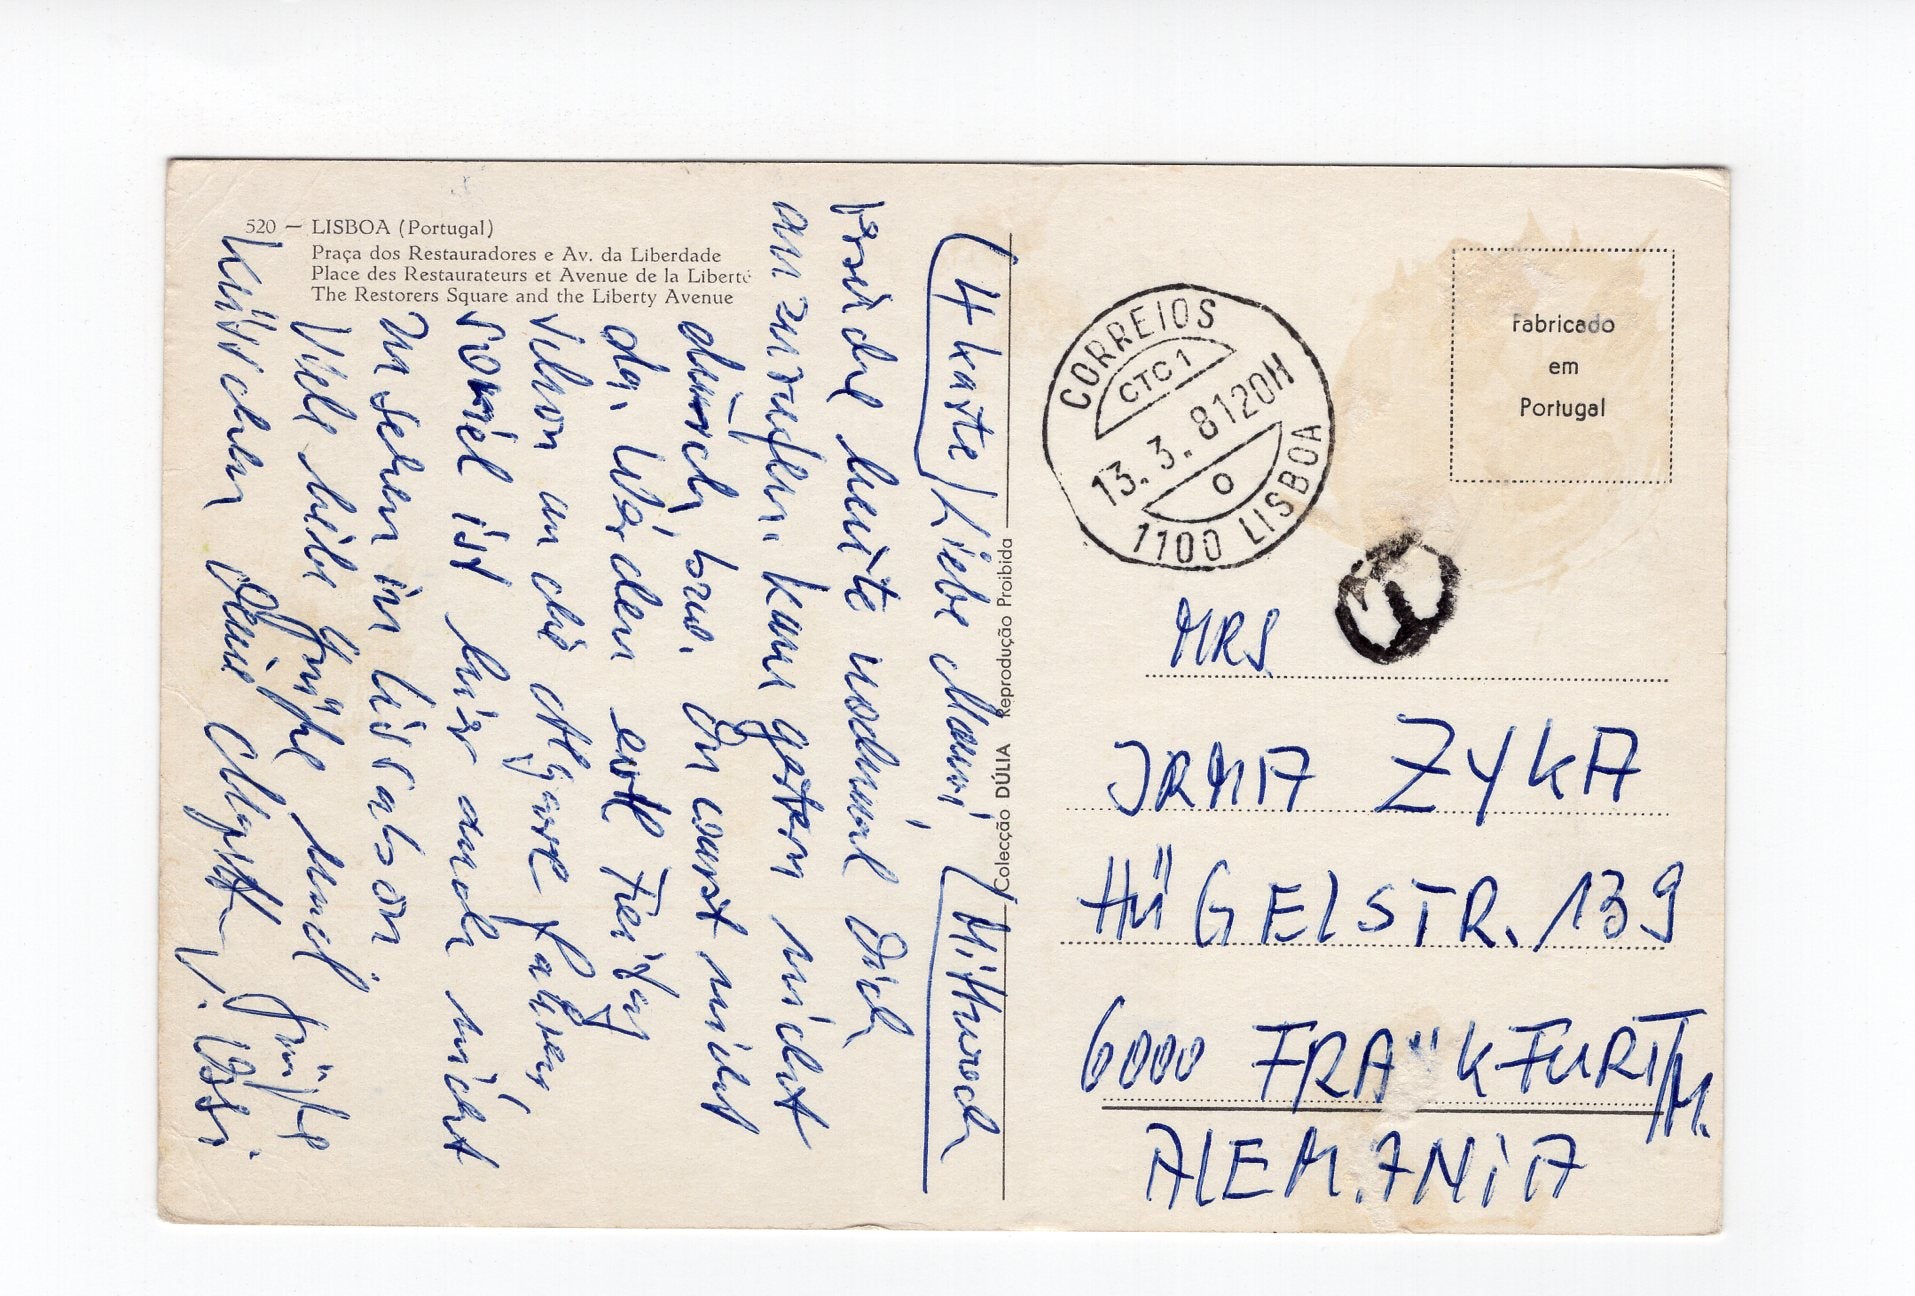 520 — LISBOA (Portugal)
Praça dos Restauradores e Av. da Liberdade
Place des Restaurateurs et Avenue de la Liberté
The Restorers Square and the Liberty Avenue
(4 Karte) Liebe Mami, Mittwoch
heute nochmal Dich
anzurufen. kam gestern nicht
durch, bzw. Du warst nicht
da. Werden evtl Freitag
schon an die Algarve fahren,
soviel ist hier auch nicht
zu sehen in Lissabon.
Viele liebe Grüße und Grüße
Küsschen Deine u.
Colecção DÚLIA Reprodução Proibida
CORREIOS
CTC 1
13.3.81 20H
O
1100 LISBOA
Fabricado
em
Portugal
T
MRS.
IRMA ZYKA
HÜGELSTR. 139
6000 FRANKFURT/M.
ALEMANIA